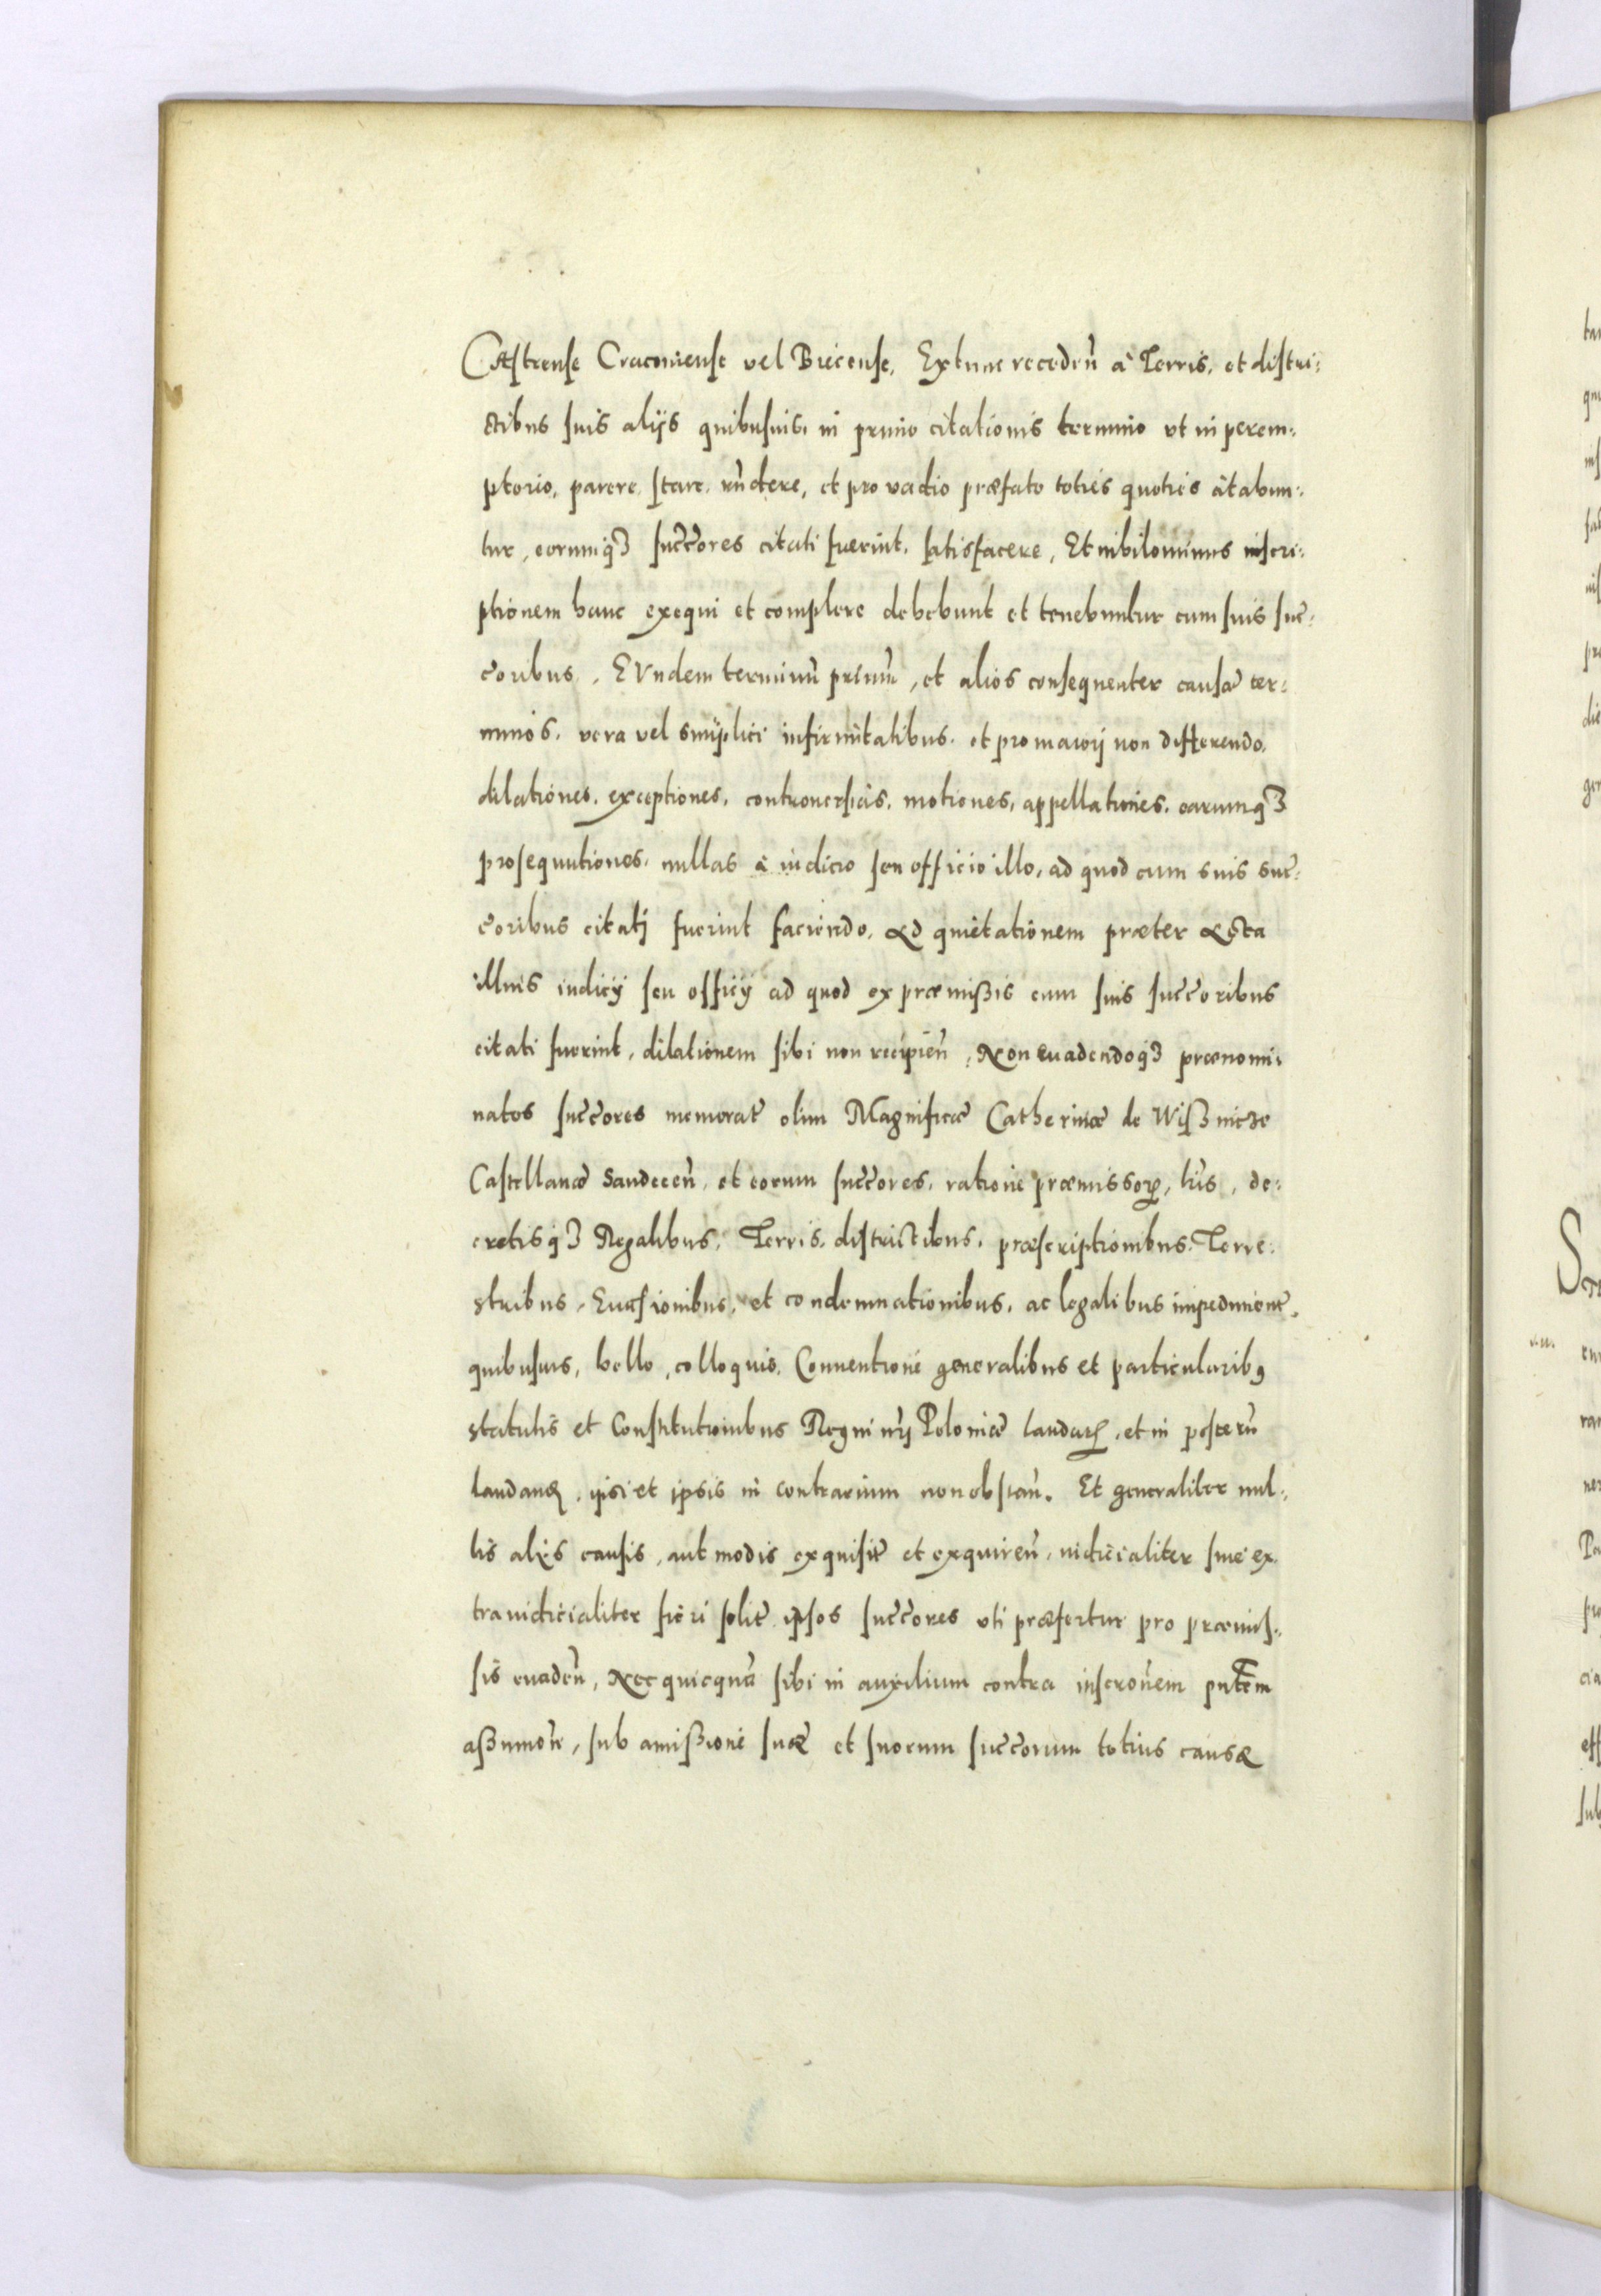 CAstrense Cracouiense vel Biecense, Extunc recedeñ à Terris, et distri:
ctibus suis alijs quibusuis, in primo citationis termino ut in perem:
ptorio, parere, stare, rñdere, et pro vadio præfato toties quoties citabun:
tur, eorumq3 succ̃ores citati fuerint, satisfacere, Et nihilominus inscri:
ptionem hanc exequi et complere debebunt et tenebuntur cum suis suc̃:
c̃oribus, EVndem terminũ primũ, et alios consequenter causæ ter:
minos, vera vel simplici infirmitatibus, et pro maiori non differendo,
dilationes, exceptiones, controuersias, motiones, appellationes, earumq3
prosequutiones, nullas à iudicio seu officio illo, ad quod cum suis suc̃:
c̃oribus citati fuerint faciendo, Ad quietationem præter Acta
illius iudicij seu officij ad quod ex præmißis cum suis succ̃oribus
citati fuerint, dilationem sibi non recipieñ, Non euadendoq3 prænomi:
natos succ̃ores memorat̃ olim Magnificæ Catherinæ de Wißnicze
Castellanæ Sandeceñ, et eorum succ̃ores, ratione præmissorꝝ, lr̃is, de:
cretisq3 Regalibus, Terris, districtibus, præscriptionibus, Terre:
stribus, Euasionibus, et condemnationibus, ac legalibus impedimenť,
quibusuis, bello, colloquio, Conuentione generalibus et particularibꝯ
statutis et Constitutionibus Regni nr̃j Poloniæ laudatꝭ, et in posterũ
laudanꝭ, ipsi et ipsis in contrarium non obstañ. Et generaliter nul:
lis alijs causis, aut modis exquisit̃ et exquireñ, iudicialiter siue ex
traiudicialiter fieri solit̃ ipsos succ̃ores uti præfertur pro præmis:
sis euadeñ, Nec quicquã sibi in auxilium contra inscrõnem pñtem
aßumeñ, sub amißione suæ et suorum succ̃orum totius causæ